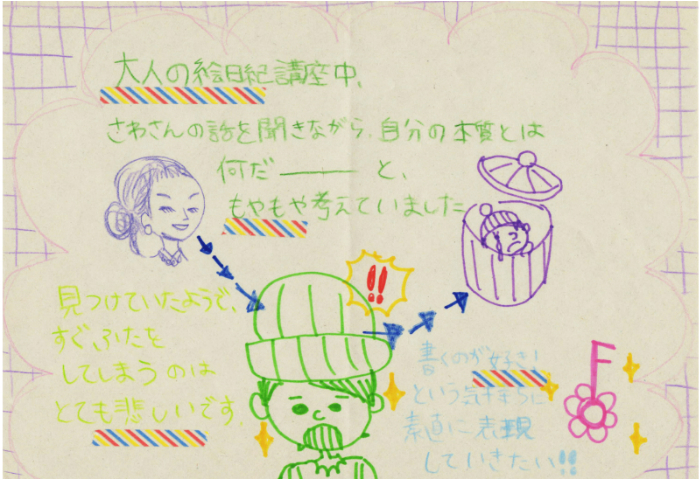 大人の絵日紀講座中、
さわさんの話を聞きながら、自分の本質とは
何だ――― と、
もやもや考えていました
!!
見つけていたようで、
すぐふたを
してしまうのは
とても悲しいです。
書くのが好き!
という気もちに
素直に表現
していきたい!!